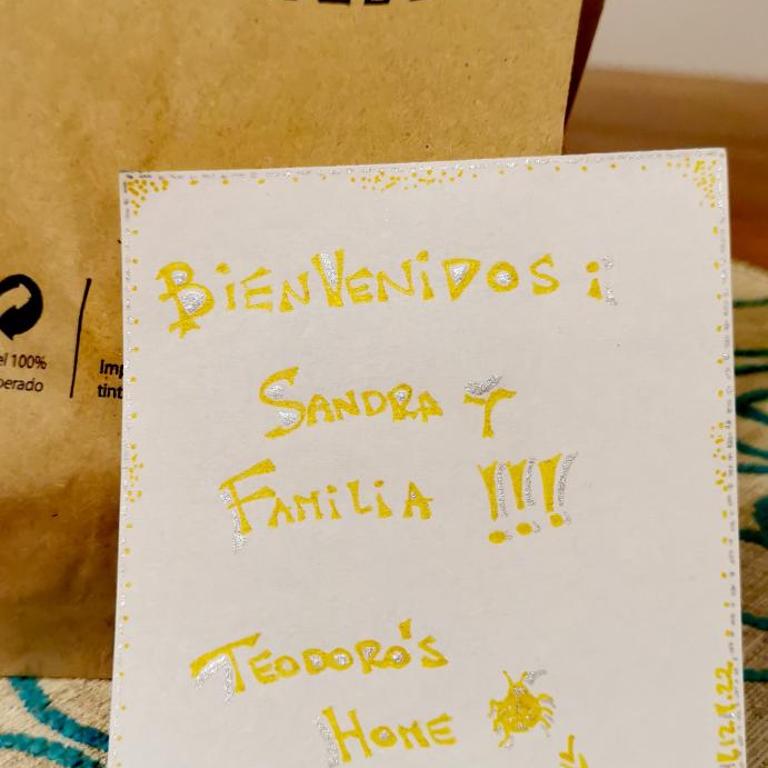 el 100%
perado
Imp
tint
BIENVENIDOS ¡
SANDRA Y
FAMILIA !!!
TEODORO'S
HOME